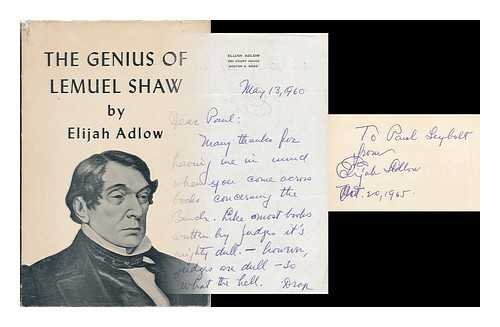 THE GENIUS OF
LEMUEL SHAW
by
Elijah Adlow
ELIJAH ADLOW
BOSTON 8, MASS
May 13, 1960
Dear Paul:
Many thanks for
having me in mind
when you come across
books concerning the
Bench. Like most books
written by judges it's
mighty dull. – however,
judges are dull – so
what the hell. Drop
To Paul Seybolt
from
Elijah Adlow
Oct. 20, 1965